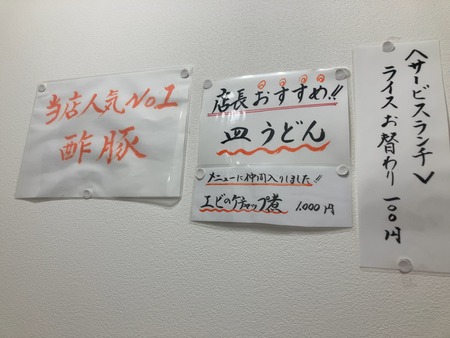 当店人気No.1
酢豚
店長おすすめ!!
皿うどん
メニューに仲間入りしました!!
エビのケチャップ煮 1,000円
〈サービスランチ〉
ライスお替わり 一〇〇円